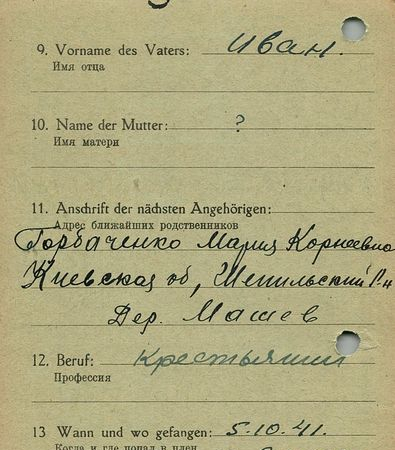 9. Vorname des Vaters: Иван.
Имя отца
10. Name der Mutter: ?
Имя матери
11. Anschrift der nächsten Angehörigen:
Адрес ближайших родственников
Горбаченко Мария Корнеевна
Киевская об, Шепильский Р-н
Дер. Машев
12. Beruf: Крестьянин
Профессия
13 Wann und wo gefangen: 5.10.41.
Когда и где попал в плен